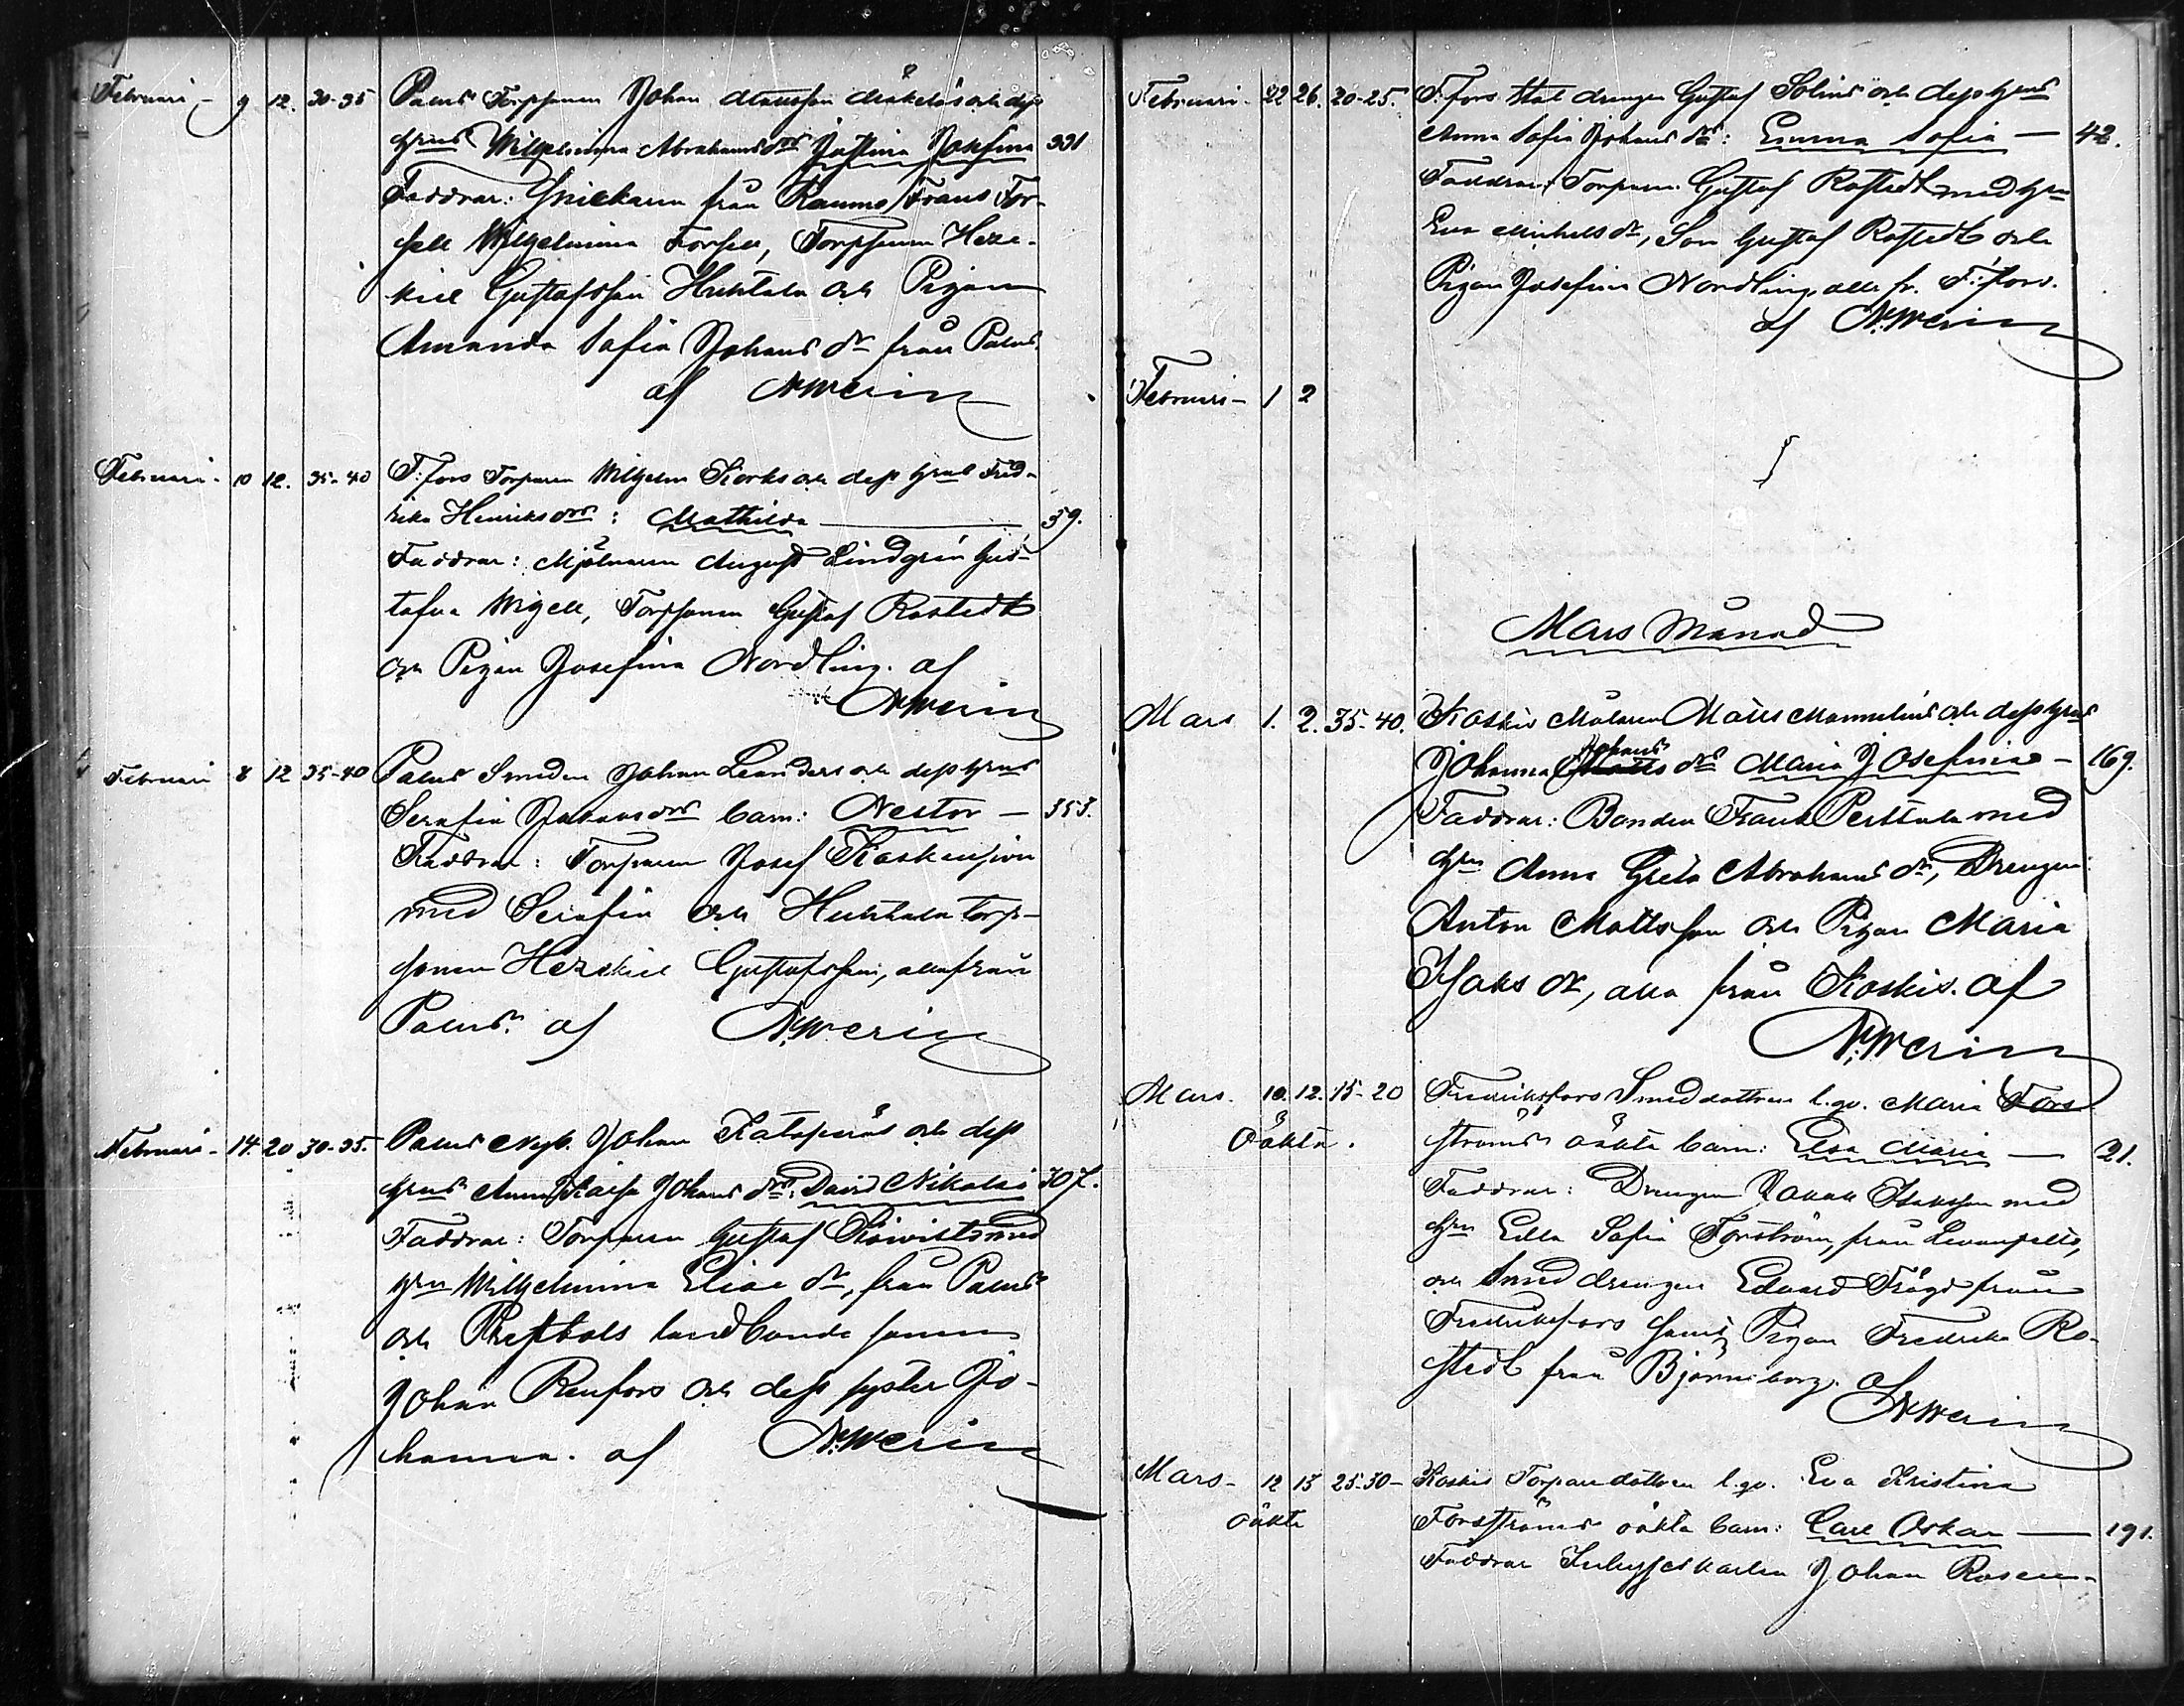 Februari - 9 12. 30-35 Palus Torpsonen Johan Mattsson Mäkelä och dess
hust. Wilhelmina Abrahams dr Justina Josefina 331
Faddrar: Snickaren från Raumo Frans For-
sell Wilhelmina Forsell, Torpsonen Heze-
kiel Gustafsson Huhtala och Pigan
Amanda Sofia Johans dr från Palus.
af N:Werin
Februari - 10 12. 35-40 F:fors Torparen Wilhelm Korks och dess hust Fred-
rika Henriks drs: Mathilda — 39.
Faddrar: Mjölnaren August Lindgrén Gus-
tafva Wigell, Torpsonen Gustaf Rostedt
och Pigan Josefina Nordling. af
N:Werin
Februari 8 12 35-40 Palus Smeden Johan Leanders och dess hust
Serafia Johans drs barn: Nestor — 353.
Faddrar: Torparen Josef Koskension
med Serafia och Huhtala torp-
sonen Hezekiel Gustafsson, alla från
Palus. af N:Werin
Februari - 14. 20 30-35. Palus Johan Katajamäs och dess
hust Anna Kaisa Johans drs: David Nikolai 307.
Faddrar: Torparen Gustaf Koivisto med
hru Wilhelmina Elias dr, från Palus
och Prestbols landbonde sonen
Johan Renfors och dess syster Jo-
hanna. af N:Werin
Februari - 22 26. 20-25. F:fors Stal drengen Gustaf Solins och dess hust
Anna Sofia Johans drs: Emma Sofia — 42.
Faddrar: Torparen Gustaf Rostedt med hru
Eva Michels dr, Son Gustaf Rostedt och
Pigan Josefina Nordling, alla fr. F:fors.
af N:Werin
Februari - 1 2
Mars Månad
Mars 1. 2. 35-40. Koskis Målaren Matts Mannelins och dess hust
Johanna Johans drs Maria Josefina - 169.
Faddrar: Bonden Frans Perttula med
hru Anna Greta Abrahams dr, Drengen
Anton Mattsson och Pigan Maria
Isaks dr, alla från Koskis. af
N:Werin
Mars. 10. 12. 15-20 Fredriksfors Smeddottren l.qv. Maria Fors-
Oäkta. ströms oäkta barn: Elsa Maria — 21.
Faddrar: Drengen Isaksson med
hru Edla Sofia Forström, från Levanpelto,
och Smed drengen Edvard Frögd från
Fredriksfors samt Pigan Fredrika Ro-
stedt från Björneborg. af
N:Werin
Mars - 12 13 25-30 - Koskis Torparedottren l.qv. Eva Kristina
oäkta Forsströms oäkta barn: Carl Oskar — 191.
Faddrar Inhyseskarlen Johan Rosen-